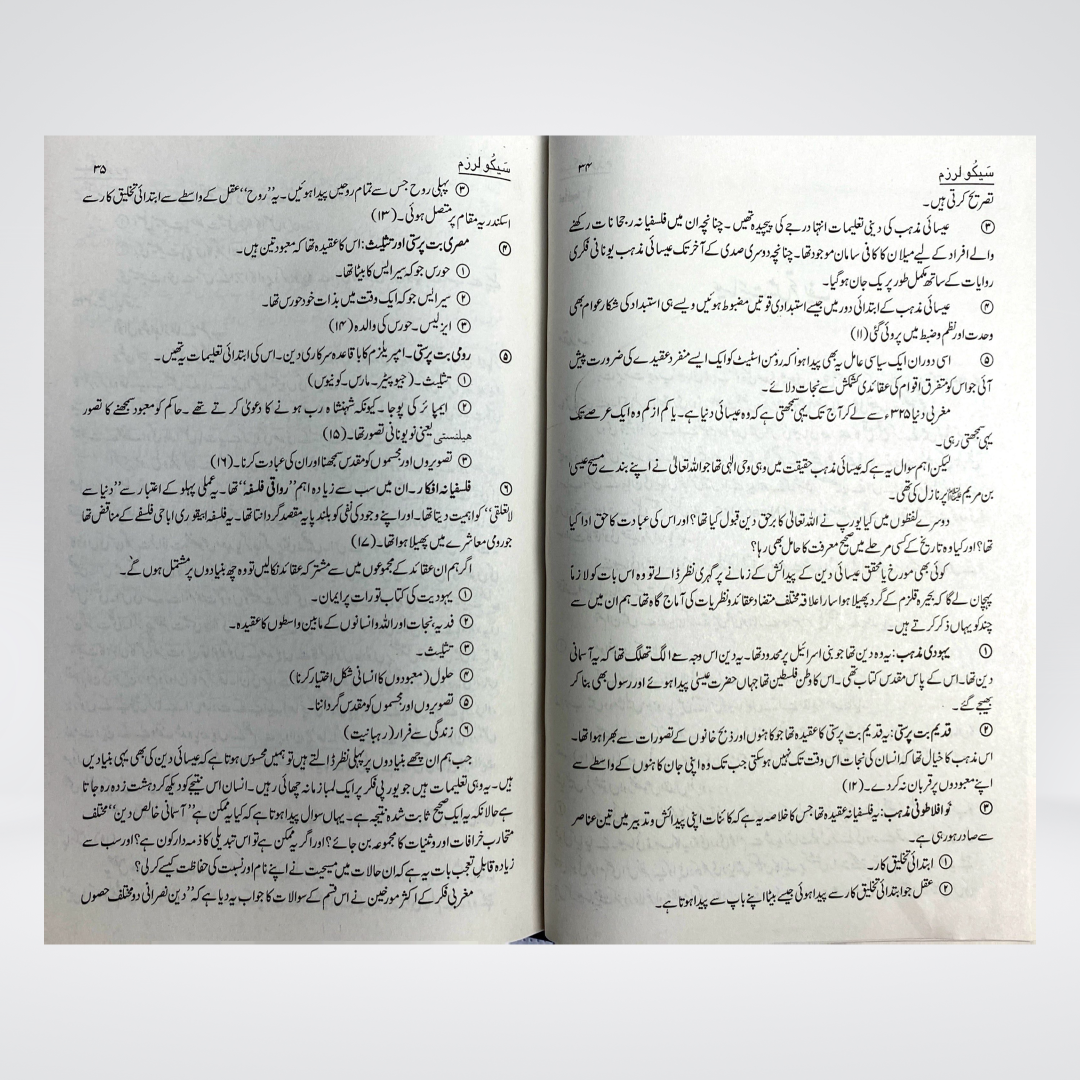 سَیکُولرزم ۳۴
تصریح کرتی ہیں۔
③ عیسائی مذہب کی دینی تعلیمات انتہا درجے کی پیچیدہ تھیں۔ چنانچہ ان میں فلسفیانہ رجحانات رکھنے
والے افراد کے لیے میلان کا کافی سامان موجود تھا۔ چنانچہ دوسری صدی کے آخر تک عیسائی مذہب یونانی فکری
روایات کے ساتھ مکمل طور پر یک جان ہوگیا۔
④ عیسائی مذہب کے ابتدائی دور میں جیسے استبدادی قوتیں مضبوط ہوئیں ویسے ہی استبداد کی شکار عوام بھی
وحدت اور نظم وضبط میں پروئی گئی (۱۱)
⑤ اسی دوران ایک سیاسی عامل یہ بھی پیدا ہوا کہ رومن اسٹیٹ کو ایک ایسے منفرد عقیدے کی ضرورت پیش
آئی جو اس کو متفرق اقوام کی عقائدی کشمکش سے نجات دلائے۔
مغربی دنیا ۳۲۵ء سے لے کر آج تک یہی سمجھتی ہے کہ وہ عیسائی دنیا ہے۔ یا کم از کم وہ ایک عرصے تک
یہی سمجھتی رہی۔
لیکن اہم سوال یہ ہے کہ عیسائی مذہب حقیقت میں وہی وحی الٰہی تھا جو اللہ تعالیٰ نے اپنے بندے مسیح عیسیٰ
بن مریم ﷺ پر نازل کی تھی۔
دوسرے لفظوں میں کیا یورپ نے اللہ تعالیٰ کا برحق دین قبول کیا تھا؟ اور اس کی عبادت کا حق ادا کیا
تھا؟ اور کیا وہ تاریخ کے کسی مرحلے میں صحیح معرفت کا حامل بھی رہا؟
کوئی بھی مورخ یا محقق عیسائی دین کے پیدائش کے زمانے پر گہری نظر ڈالے تو وہ اس بات کو لازماً
پہچان لے گا کہ بحیرہ قلزم کے گرد پھیلا ہوا سارا علاقہ مختلف متضاد عقائد ونظریات کی آماج گاہ تھا۔ ہم ان میں سے
چند کو یہاں ذکر کرتے ہیں۔
① یہودی مذہب: یہ وہ دین تھا جو بنی اسرائیل پر محدود تھا۔ یہ دین اس وجہ سے الگ تھلگ تھا کہ یہ آسمانی
دین تھا۔ اس کے پاس مقدس کتاب تھی۔ اس کا وطن فلسطین تھا جہاں حضرت عیسیٰ پیدا ہوئے اور رسول بھی بنا کر
بھیجے گئے۔
② قدیم بت پرستی: یہ قدیم بت پرستی کا عقیدہ تھا جو کاہنوں اور ذبح خانوں کے تصورات سے بھرا ہوا تھا۔
اس مذہب کا خیال تھا کہ انسان کی نجات اس وقت تک نہیں ہوسکتی جب تک وہ اپنی جان کاہنوں کے واسطے سے
اپنے معبودوں پر قربان نہ کر دے۔ (۱۲)
③ نو افلاطونی مذہب: یہ فلسفیانہ عقیدہ تھا جس کا خلاصہ یہ ہے کہ کائنات اپنی پیدائش و تدبیر میں تین عناصر
سے صادر ہو رہی ہے۔
① ابتدائی تخلیق کار۔
② عقل جو ابتدائی تخلیق کار سے پیدا ہوئی جیسے بیٹا اپنے باپ سے پیدا ہوتا ہے۔
سَیکُولرزم ۳۵
③ پہلی روح جس سے تمام روحیں پیدا ہوئیں۔ یہ ”روح“ عقل کے واسطے سے ابتدائی تخلیق کار سے
اسکندریہ مقام پر متصل ہوئی۔ (۱۳)
④ مصری بت پرستی اور تثلیث: اس کا عقیدہ تھا کہ معبود تین ہیں۔
① حورس جو کہ سیراپس کا بیٹا تھا۔
② سیراپس جو کہ ایک وقت میں بذات خود حورس تھا۔
③ ایزلیس۔ حورس کی والدہ (۱۴)
⑤ رومی بت پرستی۔ امپریلزم کا باقاعدہ سرکاری دین۔ اس کی ابتدائی تعلیمات یہ تھیں۔
① تثلیث۔ (جیوپیٹر۔ مارس۔ کونیوس)
② ایمپائر کی پوجا۔ کیونکہ شہنشاہ رب ہونے کا دعویٰ کرتے تھے۔ حاکم کو معبود سمجھنے کا تصور
ھیلنستی یعنی نو یونانی تصور تھا۔ (۱۵)
③ تصویروں اور مجسموں کو مقدس سمجھنا اور ان کی عبادت کرنا۔ (۱۶)
⑥ فلسفیانہ افکار۔ ان میں سب سے زیادہ اہم ”رواقی فلسفہ“ تھا۔ یہ عملی پہلو کے اعتبار سے ”دنیا سے
لاتعلقی“ کو اہمیت دیتا تھا۔ اور اپنے وجود کی نفی کو بلند پایہ مقصد گردانتا تھا۔ یہ فلسفہ ابیقوری اباحی فلسفے کے مناقض تھا
جو رومی معاشرے میں پھیلا ہوا تھا۔ (۱۷)
اگر ہم ان عقائد کے مجموعوں میں سے مشترکہ عقائد نکالیں تو وہ چھ بنیادوں پر مشتمل ہوں گے۔
① یہودیت کی کتاب تورات پر ایمان۔
② فدیہ، نجات اور اللہ وانسانوں کے مابین واسطوں کا عقیدہ۔
③ تثلیث۔
④ حلول (معبودوں کا انسانی شکل اختیار کرنا)
⑤ تصویروں اور مجسموں کو مقدس گرداننا۔
⑥ زندگی سے فرار (رہبانیت)
جب ہم ان چھے بنیادوں پر پہلی نظر ڈالتے ہیں تو ہمیں محسوس ہوتا ہے کہ عیسائی دین کی بھی یہی بنیادیں
ہیں۔ یہ وہی تعلیمات ہیں جو یورپی فکر پر ایک لمبا زمانہ چھائی رہیں۔ انسان اس نتیجے کو دیکھ کر دہشت زدہ رہ جاتا
ہے حالانکہ یہ ایک صحیح ثابت شدہ نتیجہ ہے۔ یہاں سوال پیدا ہوتا ہے کہ کیا یہ ممکن ہے ”آسمانی خالص دین“ مختلف
متحارب خرافات اور وثنیات کا مجموعہ بن جائے؟ اور اگر یہ ممکن ہے تو اس تبدیلی کا ذمہ دار کون ہے؟ اور سب سے
زیادہ قابل تعجب بات یہ ہے کہ ان حالات میں مسیحیت نے اپنے نام اور نسبت کی حفاظت کیسے کر لی؟
مغربی فکر کے اکثر مورخین نے اس قسم کے سوالات کا جواب یہ دیا ہے کہ ”دین نصرانی دو مختلف حصوں